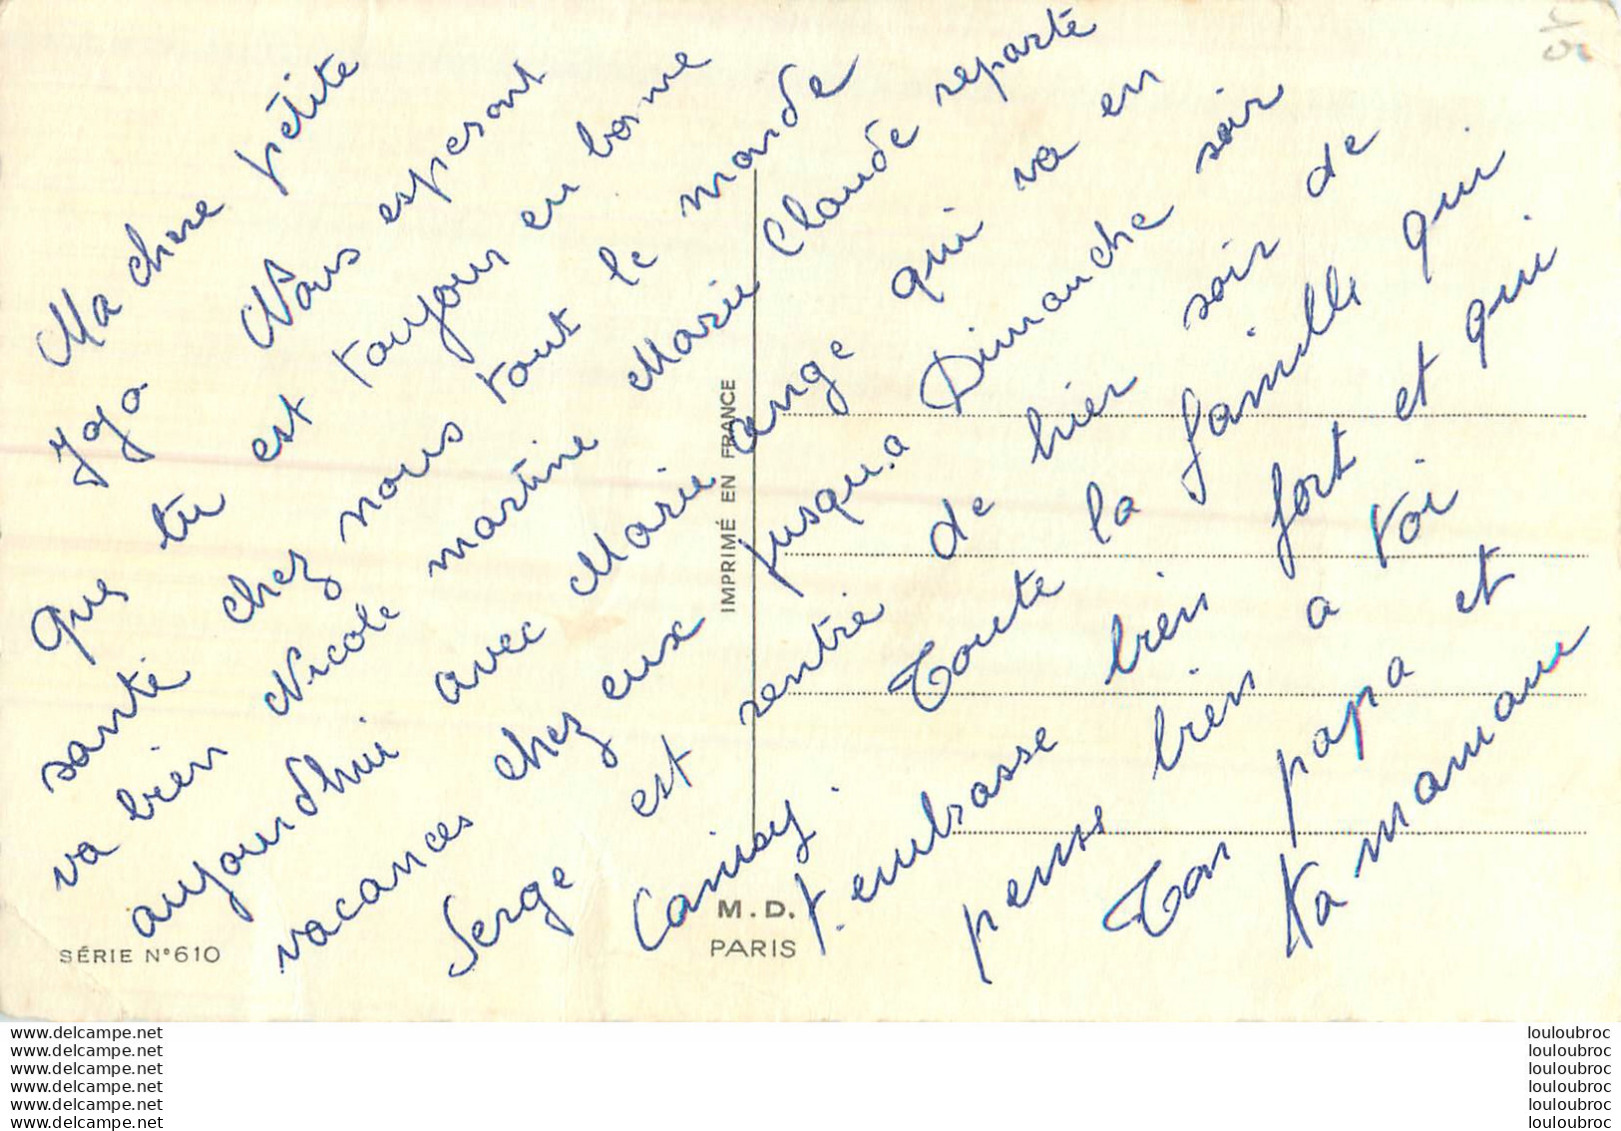 Ma chere petite
yoyo Nous esperont
que tu est toujours en bonne
santé chez nous tout le monde
va bien Nicole martine Marie Claude reparte
aujourd'hui avec Marie ange qui va en
vacances chez eux jusqu.a Dimanche soir
Serge est rentré de hier soir de
Toute la famille qui
t.embrasse bien fort et qui
pense bien a toi
Ton papa et
ta maman
IMPRIMÉ EN FRANCE
M.D.
PARIS
SÉRIE N°610
www.delcampe.net
www.delcampe.net
www.delcampe.net
www.delcampe.net
www.delcampe.net
www.delcampe.net
louloubroc
louloubroc
louloubroc
louloubroc
louloubroc
louloubroc